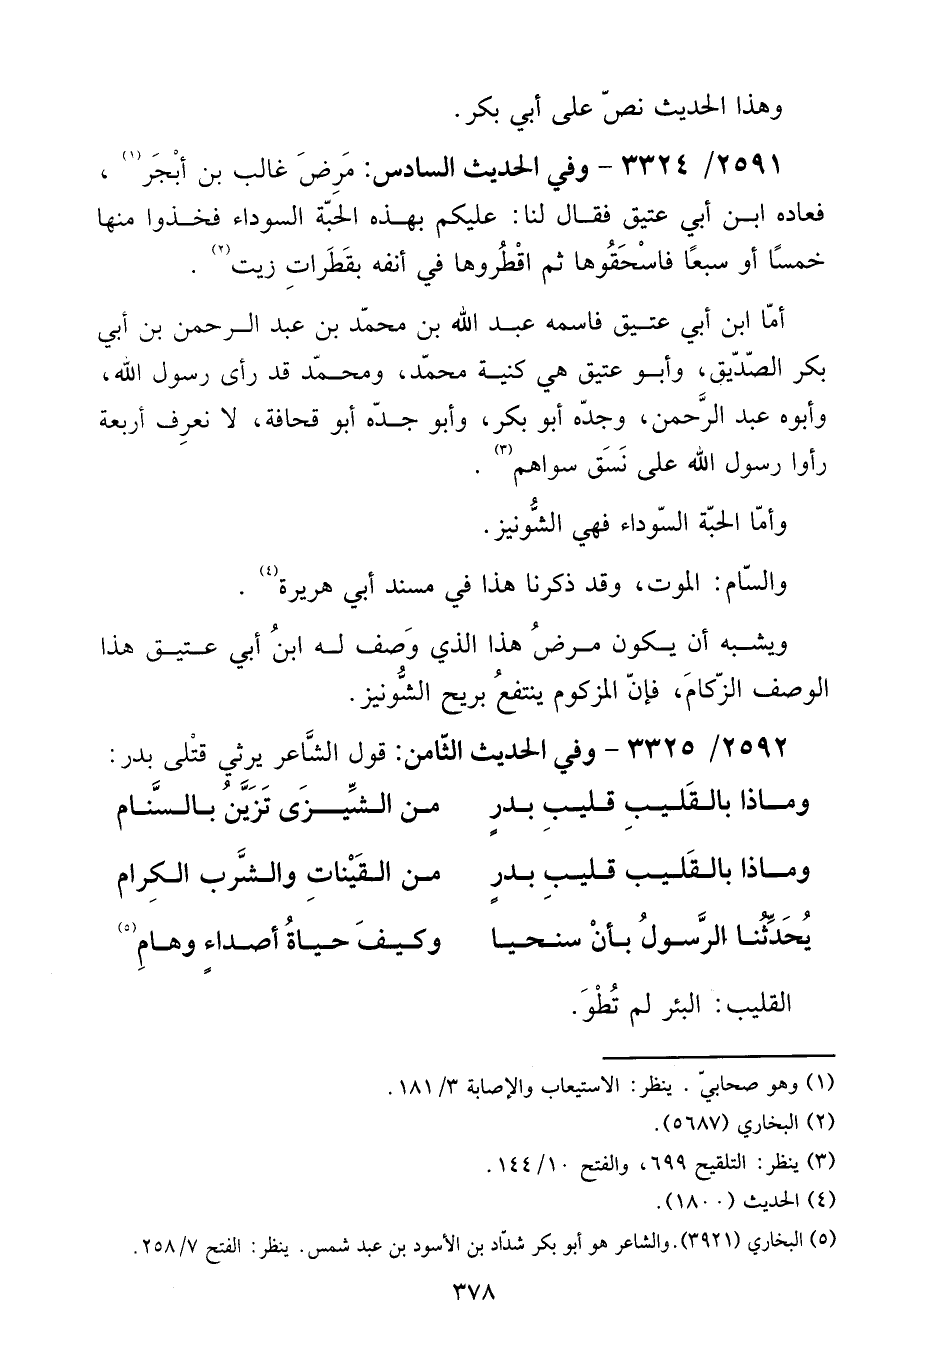 وهذا الحديث نصّ على أبي بكر.
٢٥٩١/ ٣٣٢٤ - وفي الحديث السادس: مَرِضَ غالب بن أبْجَر(١)،
فعاده ابن أبي عتيق فقال لنا: عليكم بهذه الحبّة السوداء فخذوا منها
خمسًا أو سبعًا فاسْحَقُوها ثم اقْطُروها في أنفه بقَطَراتِ زيت(٢).
أمّا ابن أبي عتيق فاسمه عبد الله بن محمّد بن عبد الرحمن بن أبي
بكر الصّدّيق، وأبو عتيق هي كنية محمّد، ومحمّد قد رأى رسول الله،
وأبوه عبد الرَّحمن، وجدّه أبو بكر، وأبو جدّه أبو قحافة، لا نعرِف أربعة
رأوا رسول الله على نَسَق سواهم(٣).
وأمّا الحبّة السّوداء فهي الشُّونيز.
والسّام: الموت، وقد ذكرنا هذا في مسند أبي هريرة(٤).
ويشبه أن يكون مرضُ هذا الذي وَصف له ابنُ أبي عتيق هذا
الوصف الزّكامَ، فإنّ المزكوم ينتفعُ بريح الشُّونيز.
٢٥٩٢/ ٣٣٢٥ - وفي الحديث الثّامن: قول الشَّاعر يرثي قتْلى بدر:
وماذا بالقَليبِ قليبِ بدرٍ من الشِّيزَى تَزَيَّنُ بالسَّنام
وماذا بالقَليبِ قليبِ بدرٍ من القَيْناتِ والشَّرب الكِرام
يُحَدِّثُنا الرَّسولُ بأنْ سنحيا وكيفَ حياةُ أصداءٍ وهامِ(٥)
القليب: البئر لم تُطْوَ.
(١) وهو صحابيّ. ينظر: الاستيعاب والإصابة ١٨١/٣.
(٢) البخاري (٥٦٨٧).
(٣) ينظر: التلقيح ٦٩٩، والفتح ١٤٤/١٠.
(٤) الحديث (١٨٠٠).
(٥) البخاري (٣٩٢١). والشاعر هو أبو بكر شدّاد بن الأسود بن عبد شمس. ينظر: الفتح ٢٥٨/٧.
٣٧٨